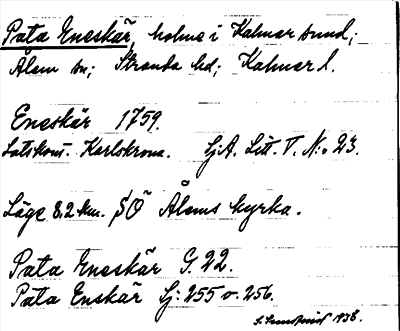 Pata Eneskär, holme i Kalmar sund;
Ålem sn; Stranda hd; Kalmar l.
Eneskär 1759.
Lotskont. Karlskrona. LjA. Litt. V. N:o 23.
Läge 8,2 km. SÖ Ålems kyrka.
Pata Eneskär G. 22.
Pata Enskär Lj: 255 v. 256.
1938.